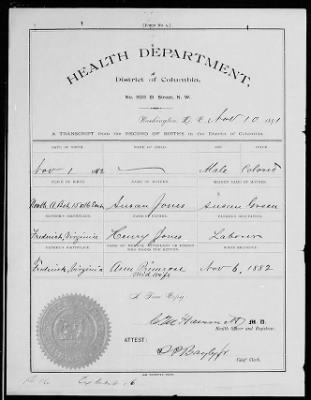 [Form No. 4.]
HEALTH DEPARTMENT,
District of Columbia,
No. 503 D Street, N. W.
Washington, D. C. Nov 10 1891
A TRANSCRIPT from the RECORD OF BIRTHS in the District of Columbia.
DATE OF BIRTH. NAME OF CHILD. SEX. COLOR.
Nov 1 1882 — Male Colored
PLACE OF BIRTH. NAME OF MOTHER. MAIDEN NAME OF MOTHER.
North A Bet 15 & 16 East Susan Jones Susan Green
MOTHER'S BIRTHPLACE. NAME OF FATHER. FATHER'S OCCUPATION.
Frederick, Virginia Henry Jones Laborer
FATHER'S BIRTHPLACE. NAME OF MEDICAL ATTENDANT OR PERSON WHO MAKES THE RETURN. WHEN RECORDED.
Frederick, Virginia Ann Primrose Nov 6, 1882
Midwife
A True Copy.
M. D.
Health Officer and Registrar.
ATTEST:
Chief Clerk.